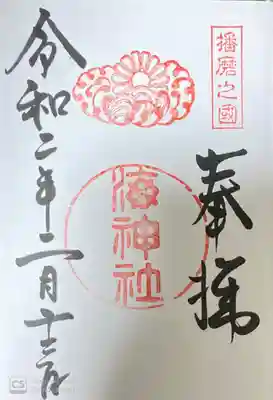 播磨之國
奉拝
海神社
令和二年二月十三日
CS